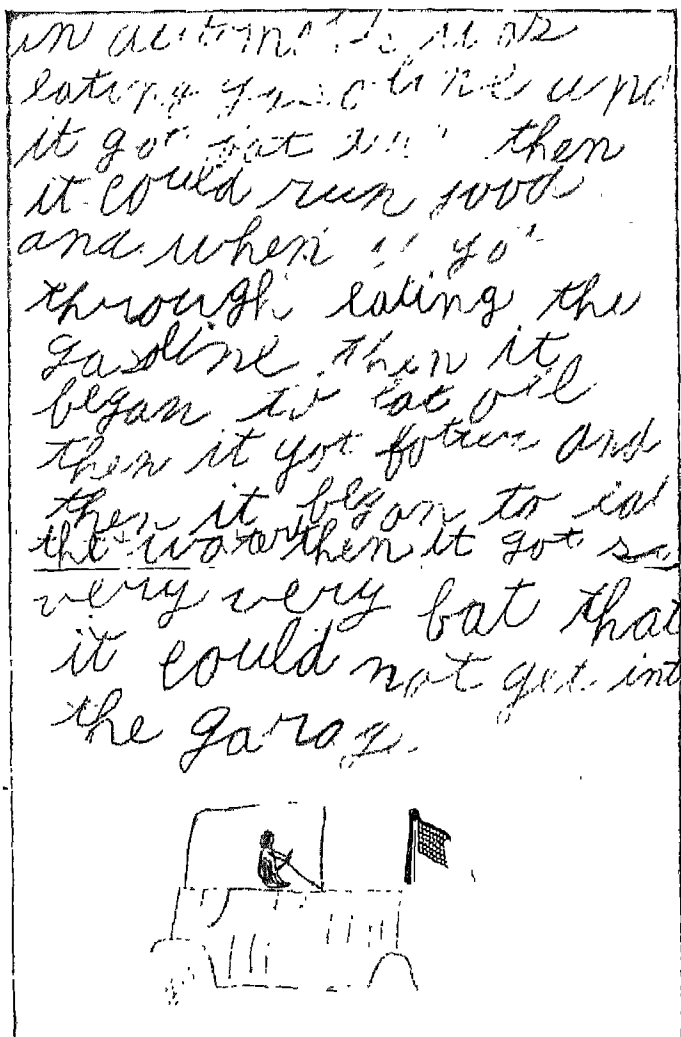 an automobile was
eating gasoline and
it got fat and then
it could run good
and when it got
through eating the
gasoline then it
began to eat oil
then it got and
then it began to eat
the water then it got so
very very bat that
it could not get int
the garag.